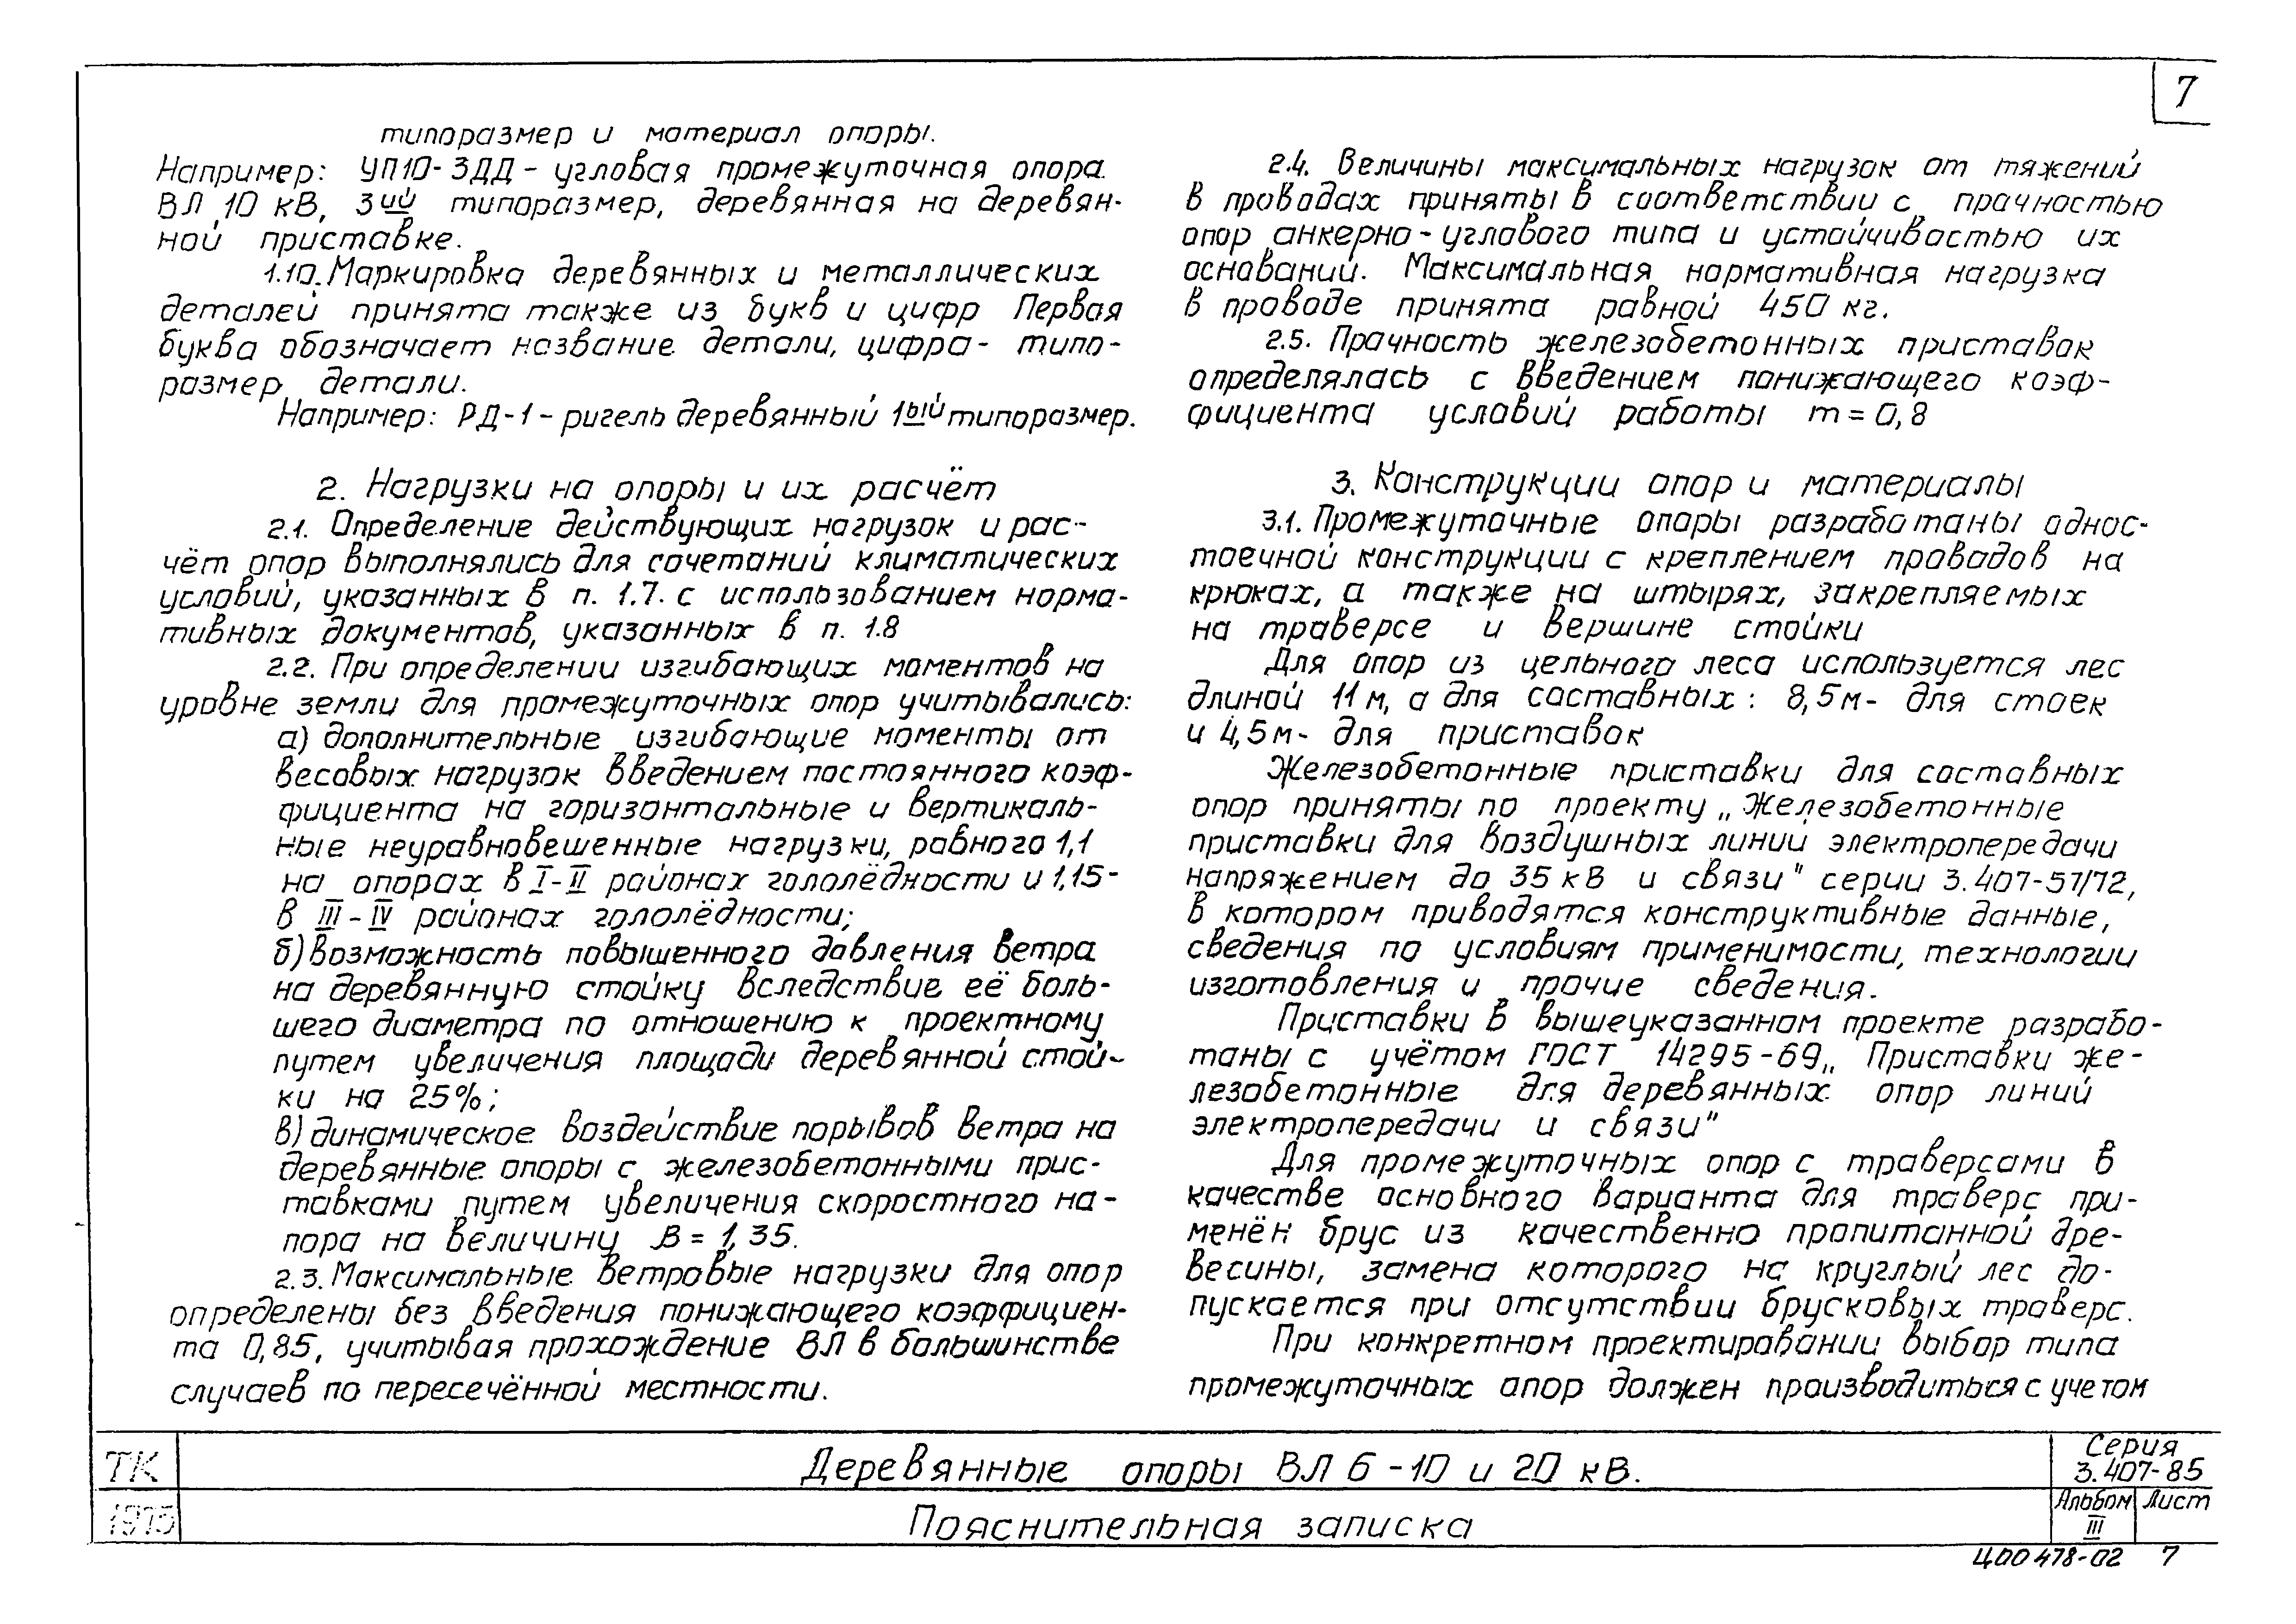 7
типоразмер и материал опоры.
Например: УП10-3ДД - угловая промежуточная опора
ВЛ 10 кВ, 3ий типоразмер, деревянная на деревян-
ной приставке.
1.10. Маркировка деревянных и металлических
деталей принята также из букв и цифр Первая
буква обозначает название детали, цифра - типо-
размер детали.
Например: РД-1 - ригель деревянный 1ый типоразмер.
2. Нагрузки на опоры и их расчёт
2.1. Определение действующих нагрузок и рас-
чёт опор выполнялись для сочетаний климатических
условий, указанных в п. 1.7. с использованием норма-
тивных документов, указанных в п. 1.8
2.2. При определении изгибающих моментов на
уровне земли для промежуточных опор учитывались:
а) дополнительные изгибающие моменты от
весовых нагрузок введением постоянного коэф-
фициента на горизонтальные и вертикаль-
ные неуравновешенные нагрузки, равного 1,1
на опорах в I-II районах гололёдности и 1,15-
в III-IV районах гололёдности;
б) возможность повышенного давления ветра
на деревянную стойку вследствие её боль-
шего диаметра по отношению к проектному
путем увеличения площади деревянной стой-
ки на 25%;
в) динамическое воздействие порывов ветра на
деревянные опоры с железобетонными прис-
тавками путем увеличения скоростного на-
пора на величину β = 1,35.
2.3. Максимальные ветровые нагрузки для опор
определены без введения понижающего коэффициен-
та 0,85, учитывая прохождение ВЛ в большинстве
случаев по пересечённой местности.
2.4. Величины максимальных нагрузок от тяжений
в проводах приняты в соответствии с прочностью
опор анкерно-углового типа и устойчивостью их
оснований. Максимальная нормативная нагрузка
в проводе принята равной 450 кг.
2.5. Прочность железобетонных приставок
определялась с введением понижающего коэф-
фициента условий работы m = 0,8
3. Конструкции опор и материалы
3.1. Промежуточные опоры разработаны однос-
тоечной конструкции с креплением проводов на
крюках, а также на штырях, закрепляемых
на траверсе и вершине стойки
Для опор из цельного леса используется лес
длиной 11 м, а для составных: 8,5 м - для стоек
и 4,5 м - для приставок
Железобетонные приставки для составных
опор приняты по проекту „Железобетонные
приставки для воздушных линий электропередачи
напряжением до 35 кВ и связи" серии 3.407-57/72,
в котором приводятся конструктивные данные,
сведения по условиям применимости, технологии
изготовления и прочие сведения.
Приставки в вышеуказанном проекте разрабо-
таны с учётом ГОСТ 14295-69 „Приставки же-
лезобетонные для деревянных опор линий
электропередачи и связи"
Для промежуточных опор с траверсами в
качестве основного варианта для траверс при-
менён брус из качественно пропитанной дре-
весины, замена которого на круглый лес до-
пускается при отсутствии брусковых траверс.
При конкретном проектировании выбор типа
промежуточных опор должен производиться с учетом
ТК
1975
Деревянные опоры ВЛ 6-10 и 20 кВ.
Пояснительная записка
Серия
3.407-85
Альбом Лист
III
Ц00478-02 7